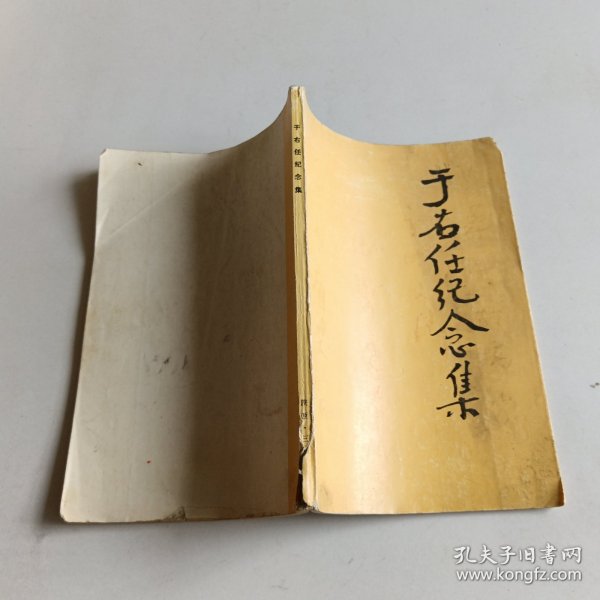 于右任纪念集
于右任纪念集
孔夫子旧書网
www.kongfz.com